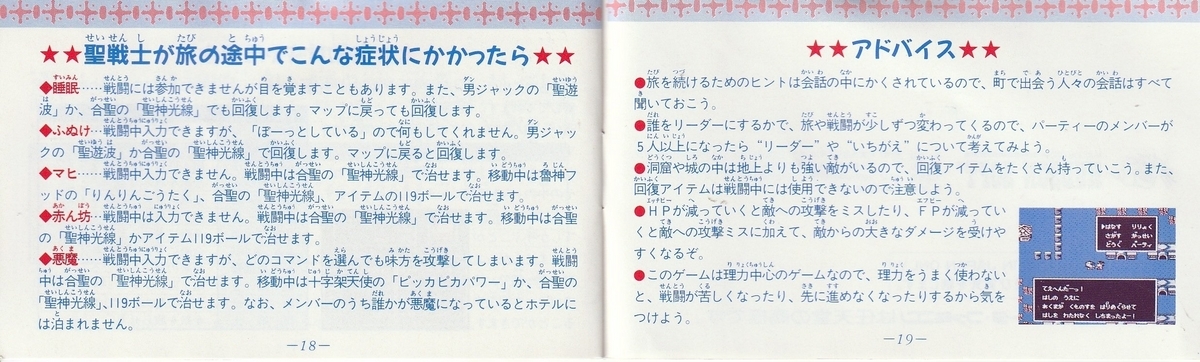 ★★聖戦士が旅の途中でこんな症状にかかったら★★
◆睡眠…戦闘には参加できませんが目を覚ますこともあります。また、男ジャックの「聖遊
波」か、合聖の「聖神光線」でも回復します。マップに戻っても回復します。
◆ふぬけ…戦闘中入力できますが、「ぼーっとしている」ので何もしてくれません。男ジャッ
クの「聖遊波か合聖の「聖神光線」で回復します。マップに戻ると回復します。
◆マヒ…戦闘中入力できません。戦闘中は合聖の「聖神光線」で治せます。移動中は魯神フ
ッドの「りんりんごうたく」、合聖の「聖神光線」、アイテムの119ボールで治せます。
◆赤ん坊…戦闘中は入力できません。戦闘中は合聖の「聖神光線」で治せます。移動中は合聖
の「聖神光線」かアイテム119ボールで治せます。
◆悪魔…戦闘中入力できますが、どのコマンドを選んでも味方を攻撃してしまいます。戦闘
中は合聖の「聖神光線」で治せます。移動中は十字架天使の「ピッカピカパワー」か、合聖の
「聖神光線」、119ボールで治せます。なお、メンバーのうち誰かが悪魔になっているとホテルに
は泊まれません。
—18—
★★アドバイス★★
●旅を続けるためのヒントは会話の中にかくされているので、町で出会う人々の会話はすべて
聞いておこう。
●誰をリーダーにするかで、旅や戦闘が少しずつ変わってくるので、パーティーのメンバーが
5人以上になったら"リーダー"や"いちがえ"について考えてみよう。
●洞窟や城の中は地上よりも強い敵がいるので、回復アイテムをたくさん持っていこう。また、
回復アイテムは戦闘中には使用できないので注意しよう。
●HPが減っていくと敵への攻撃をミスしたり、FPが減ってい
くと敵への攻撃ミスに加えて、敵からの大きなダメージを受けや
すくなるぞ。
●このゲームは理力中心のゲームなので、理力をうまく使わない
と、戦闘が苦しくなったり、先に進めなくなったりするから気を
つけよう。
はなす りりょく
さがす がっせい
どうぐ パーティ
てえへんだーっ!
はしの うえに
あくまが くものすを はりめぐらせて
はしを わたれなく しちまったよー!
—19—